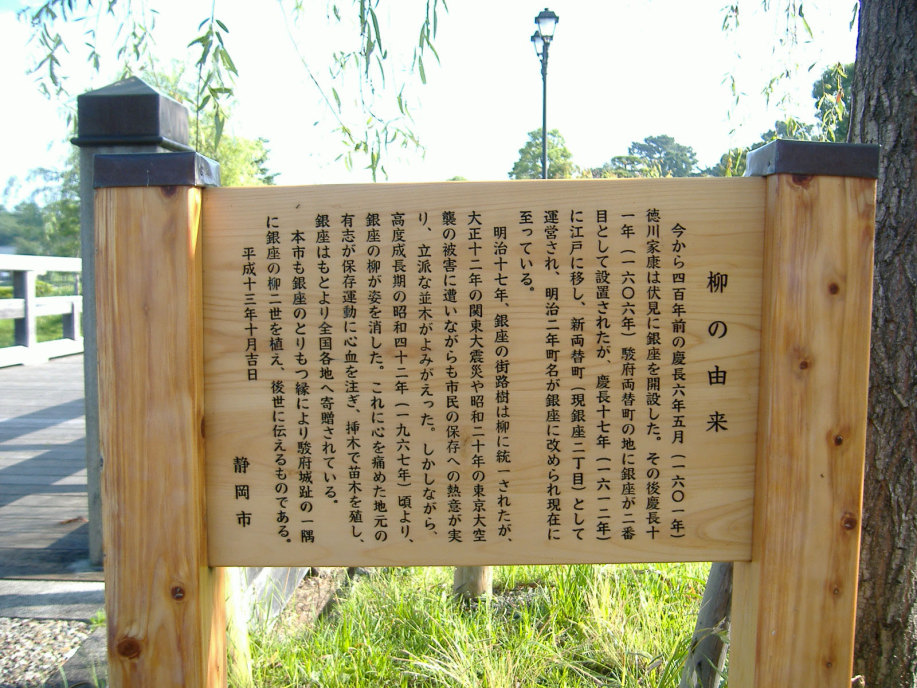 柳の由来
今から四百年前の慶長六年五月（一六〇一年）
徳川家康は伏見に銀座を開設した。その後慶長十
一年（一六〇六年）駿府両替町の地に銀座が二番
目として設置されたが、慶長十七年（一六一二年）
に江戸に移し、新両替町（現銀座二丁目）として
運営され、明治二年町名が銀座に改められ現在に
至っている。
明治十七年、銀座の街路樹は柳に統一されたが、
大正十二年の関東大震災や昭和二十年の東京大空
襲の被害に遭いながらも市民の保存への熱意が実
り、立派な並木がよみがえった。しかしながら、
高度成長期の昭和四十二年（一九六七年）頃より、
銀座の柳が姿を消した。これに心を痛めた地元の
有志が保存運動に心血を注ぎ、挿木で苗木を殖し、
銀座はもとより全国各地へ寄贈されている。
本市も銀座のとりもつ縁により駿府城趾の一隅
に銀座の柳二世を植え、後世に伝えるものである。
平成十三年十月吉日
静岡市